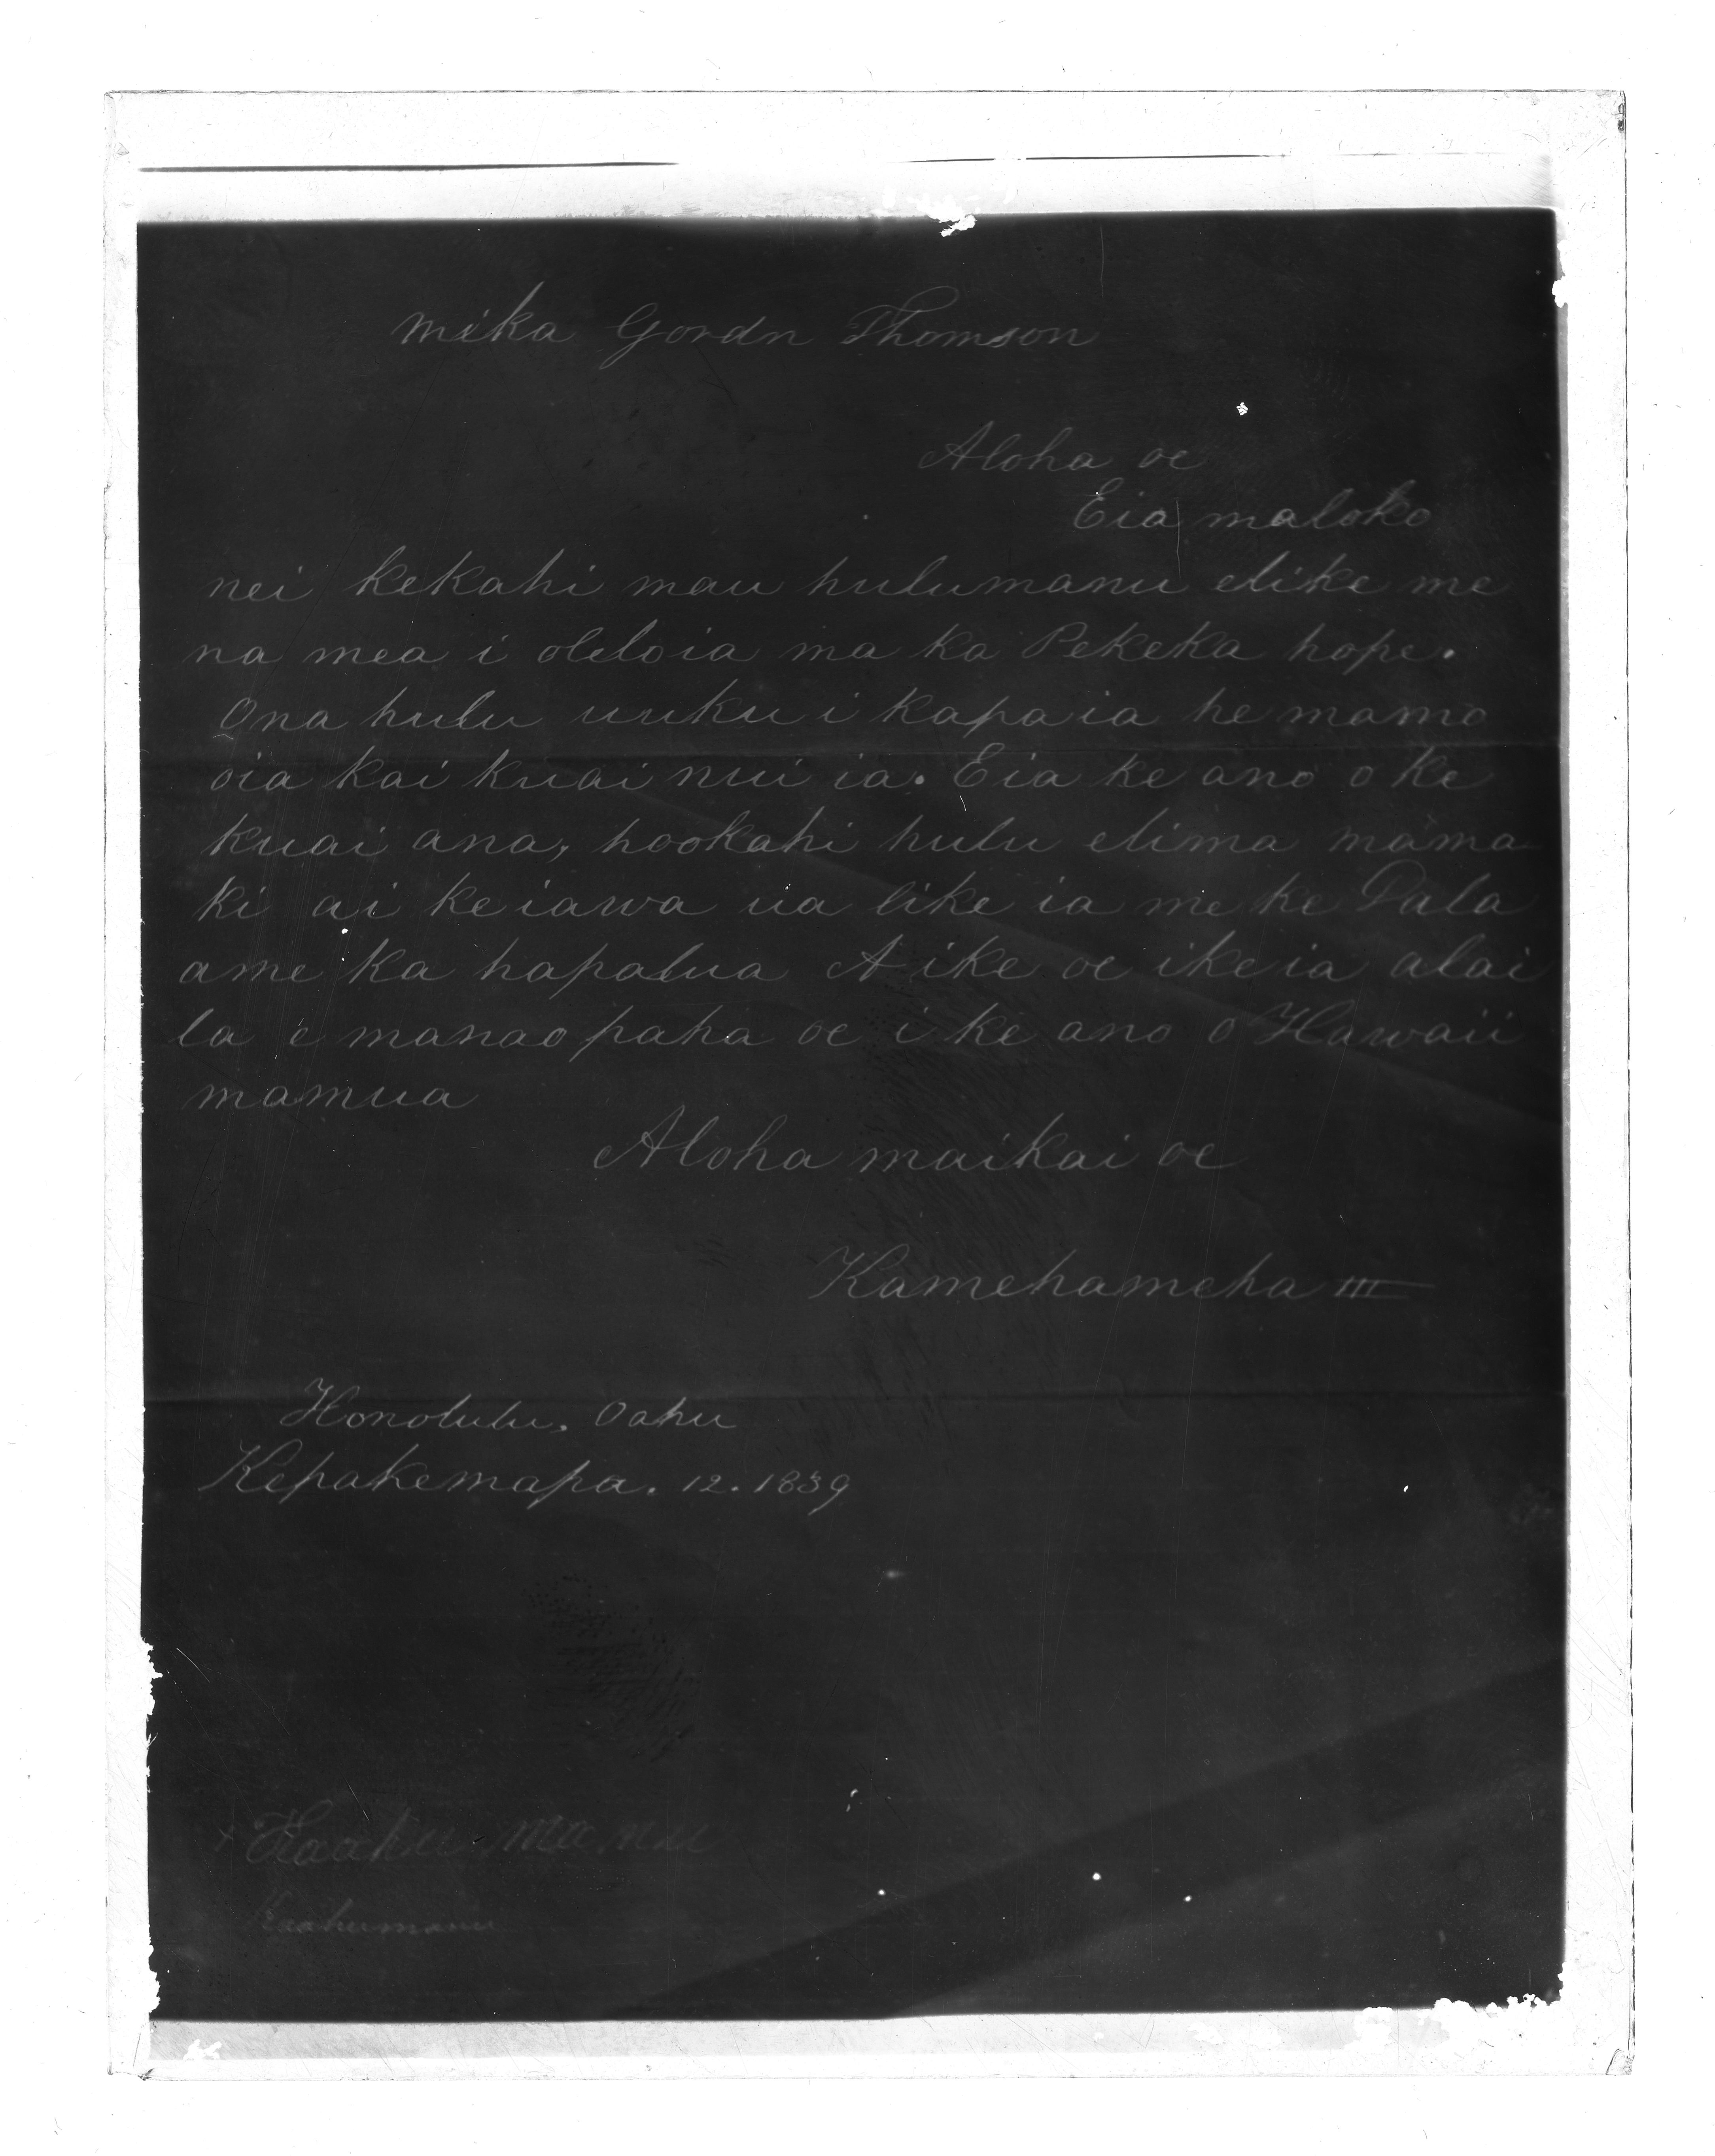 Mika Gordn Thomson
Aloha oe
Eia maloko
nei kekahi mau hulumanu elike me
na mea i oleloia ma ka Pekeka hope.
Ona hulu uuku i kapaia he mamo
oia kai kuai nui ia. Eia ke ano o ke
kuai ana, hookahi hulu elima mama
ki ai keiawa ua like ia me ke Dala
ame ka hapalua A ike oe ikeia alai
la e manao paha oe i ke ano o Hawaii
mamua
Aloha maikai oe
Kamehameha III
Honolulu, Oahu
Kepakemapa. 12. 1839
x Kaahu manu
Kaahumanu